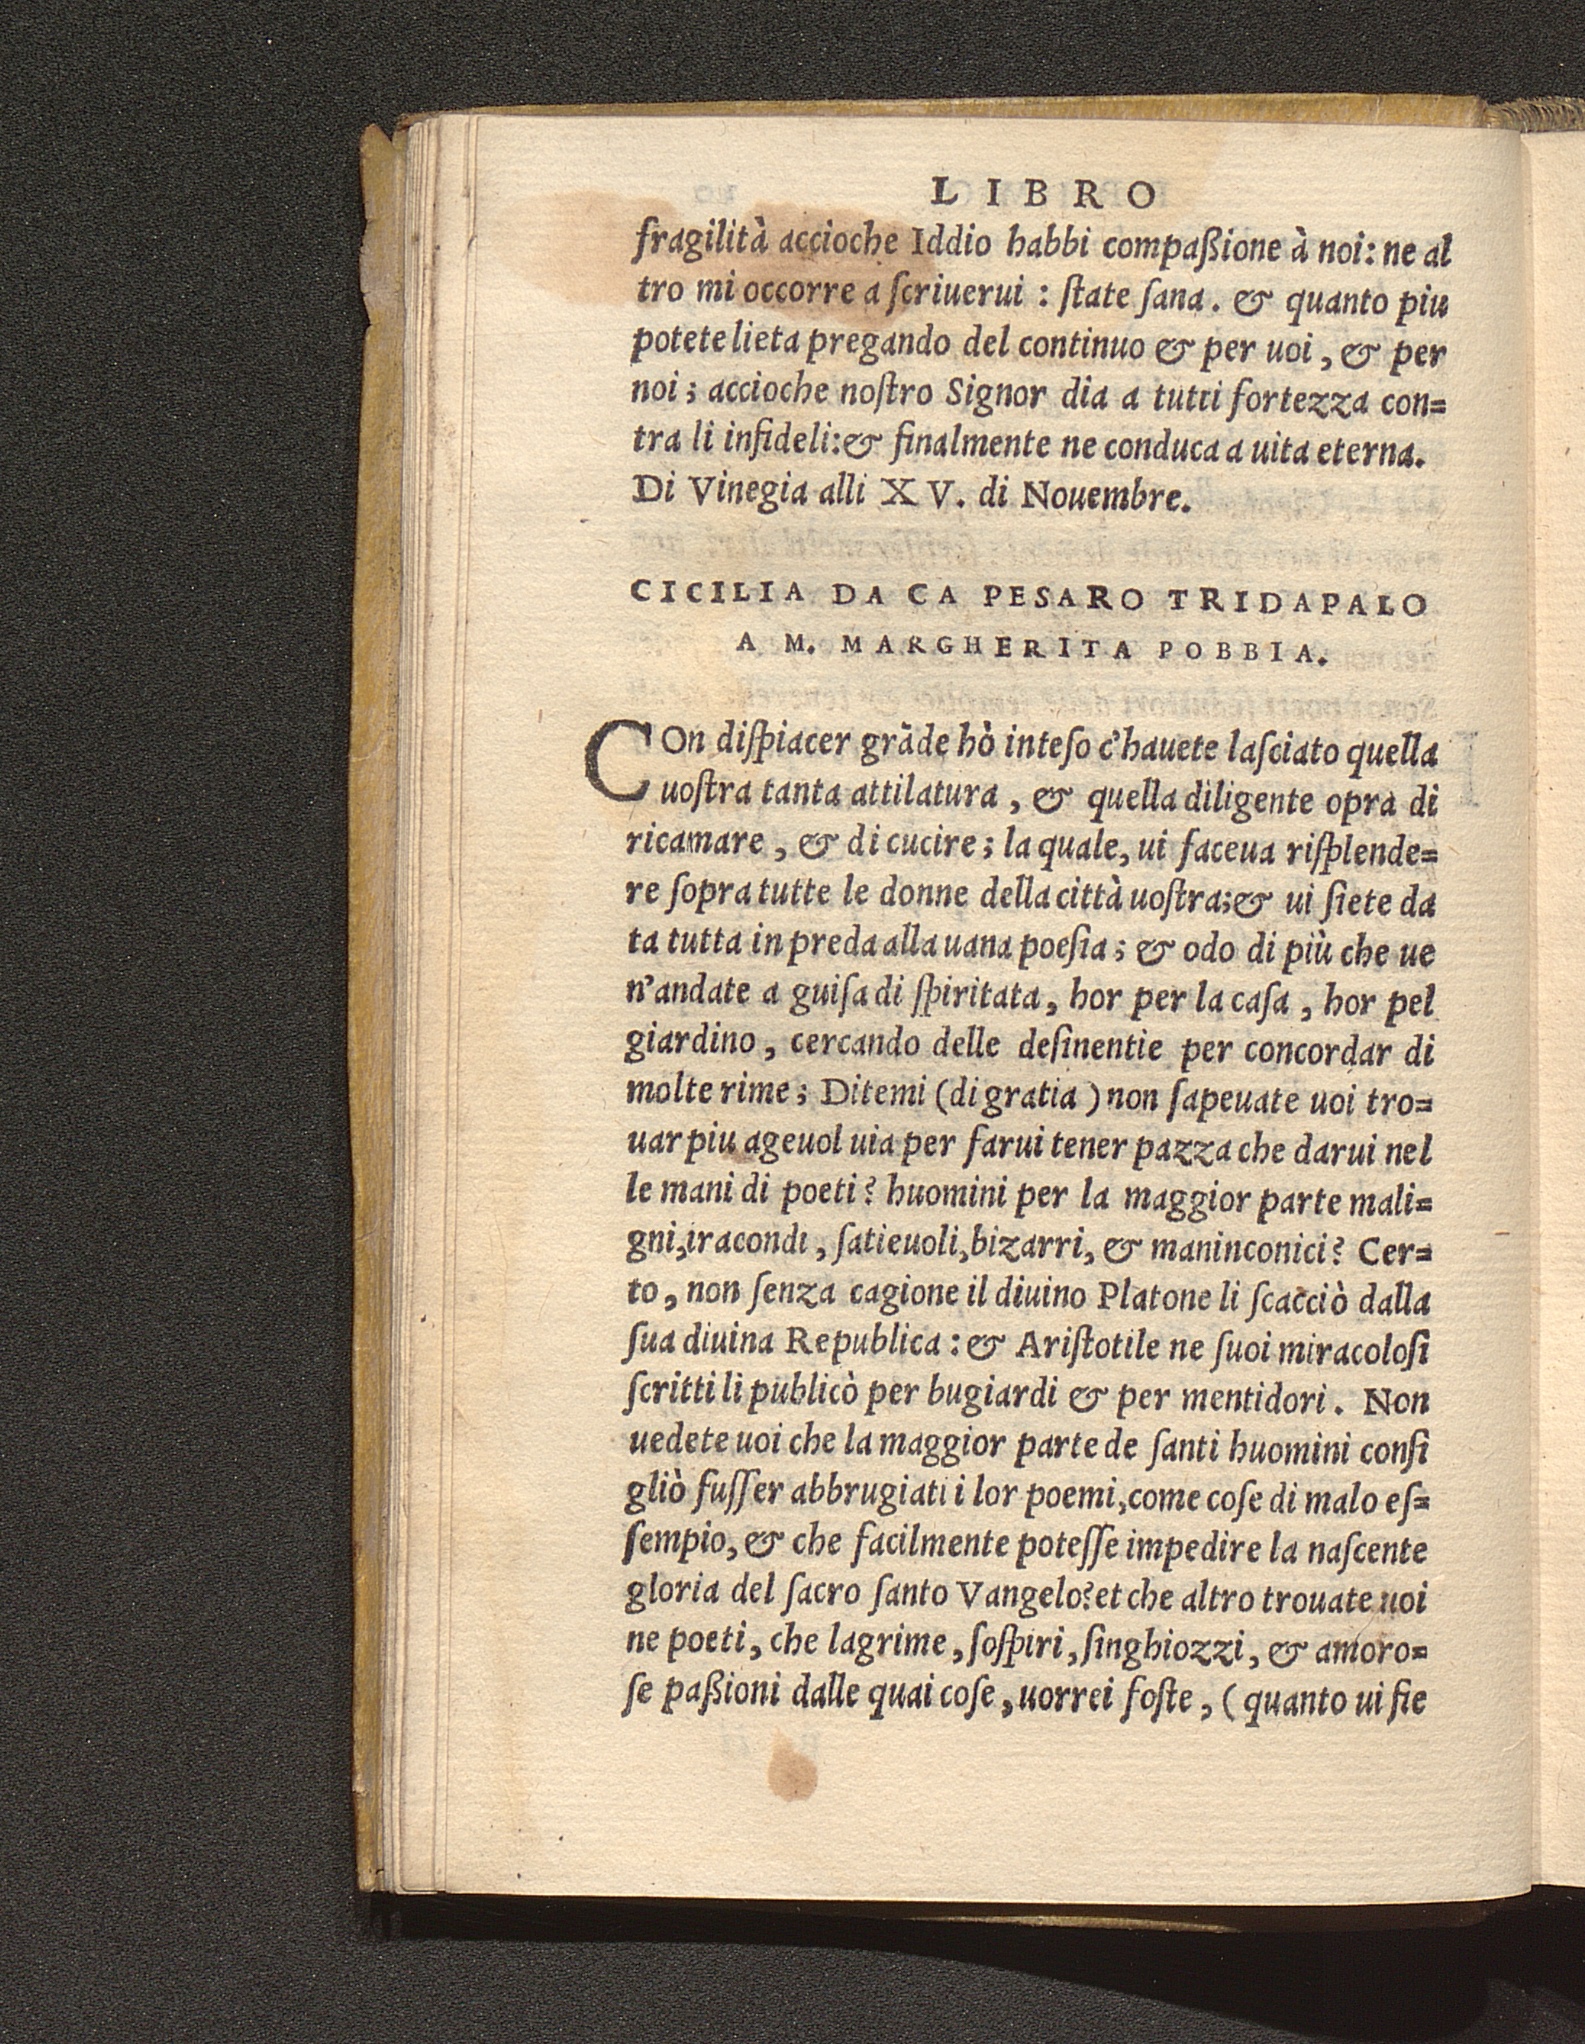 LIBRO
fragilità accioche Iddio habbi compaßione à noi: ne al
tro mi occorre a ſcriuerui : ſtate ſana. & quanto piu
potete lieta pregando del continuo & per uoi, & per
noi; accioche noſtro Signor dia a tutti fortezza con=
tra li infideli:& finalmente ne conduca a uita eterna.
Di Vinegia alli XV. di Nouembre.
CICILIA DA CA PESARO TRIDAPALO
A M. MARGHERITA POBBIA.
COn diſpiacer grãde hò inteſo c'hauete laſciato quella
uoſtra tanta attilatura, & quella diligente opra di
ricamare, & di cucire; la quale, ui faceua riſplende=
re ſopra tutte le donne della città uoſtra;& ui ſiete da
ta tutta in preda alla uana poeſia; & odo di più che ue
n'andate a guiſa di ſpiritata, hor per la caſa, hor pel
giardino, cercando delle deſinentie per concordar di
molte rime; Ditemi (di gratia) non ſapeuate uoi tro=
uar piu ageuol uia per farui tener pazza che darui nel
le mani di poeti? huomini per la maggior parte mali=
gni,iracondi, ſatieuoli,bizarri, & maninconici? Cer=
to, non ſenza cagione il diuino Platone li ſcacciò dalla
ſua diuina Republica: & Ariſtotile ne ſuoi miracoloſi
ſcritti li publicò per bugiardi & per mentidori. Non
uedete uoi che la maggior parte de ſanti huomini conſi
gliò fuſſer abbrugiati i lor poemi,come coſe di malo eſ=
ſempio, & che facilmente poteſſe impedire la naſcente
gloria del ſacro ſanto Vangelo?et che altro trouate uoi
ne poeti, che lagrime, ſoſpiri, ſinghiozzi, & amoro=
ſe paßioni dalle quai coſe, uorrei foſte, (quanto ui fie